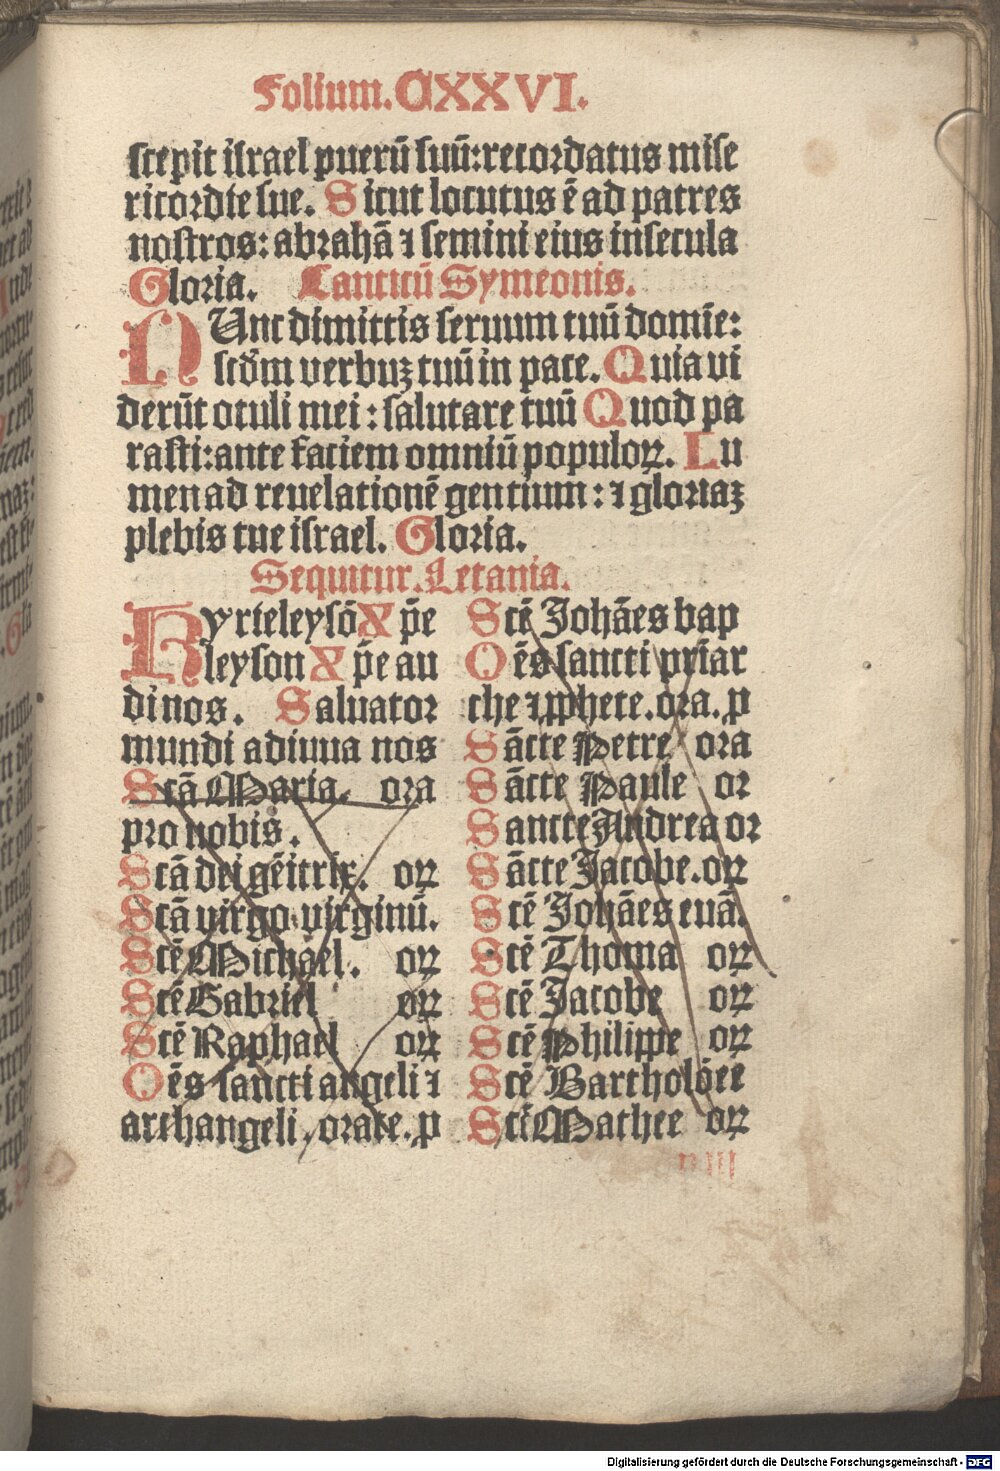 Folium. CXXVI.
scepit israel puerū suū: recordatus mise
ricordie sue. Sicut locutus ē ad patres
nostros: abrahā ⁊ semini eius insecula
Gloria. Canticū Symeonis.
NUnc dimittis seruum tuū domīe:
scd̄m verbuꝫ tuū in pace. Quia vi
derūt oculi mei: salutare tuū Quod pa
rasti: ante faciem omniū populoꝝ. Lu
men ad reuelationē gentium: ⁊ gloriaꝫ
plebis tue israel. Gloria.
Sequitur. Letania.
Kyrieleysō X p̄e
leyson X p̄e au
di nos. Saluator
mundi adiuua nos
Scā Maria. ora
pro nobis.
Scā dei gēitrix. oꝝ
Scā uirgo uirginū.
Scē Michael. oꝝ
Scē Gabriel oꝝ
Scē Raphael oꝝ
Oēs sancti angeli ⁊
archangeli. orate. p
Scē Johāes bap
Oēs sancti pr̄iar
che ⁊ ꝓphete. ora. p
Sācte Petre ora
Sācte Paule or
Sancte Andrea or
Sācte Jacobe. oꝝ
Scē Johāes euā.
Scē Thoma oꝝ
Scē Jacobe oꝝ
Scē Philippe oꝝ
Scē Bartholōee
Scē Mathee oꝝ
Digitalisierung gefördert durch die Deutsche Forschungsgemeinschaft - DFG